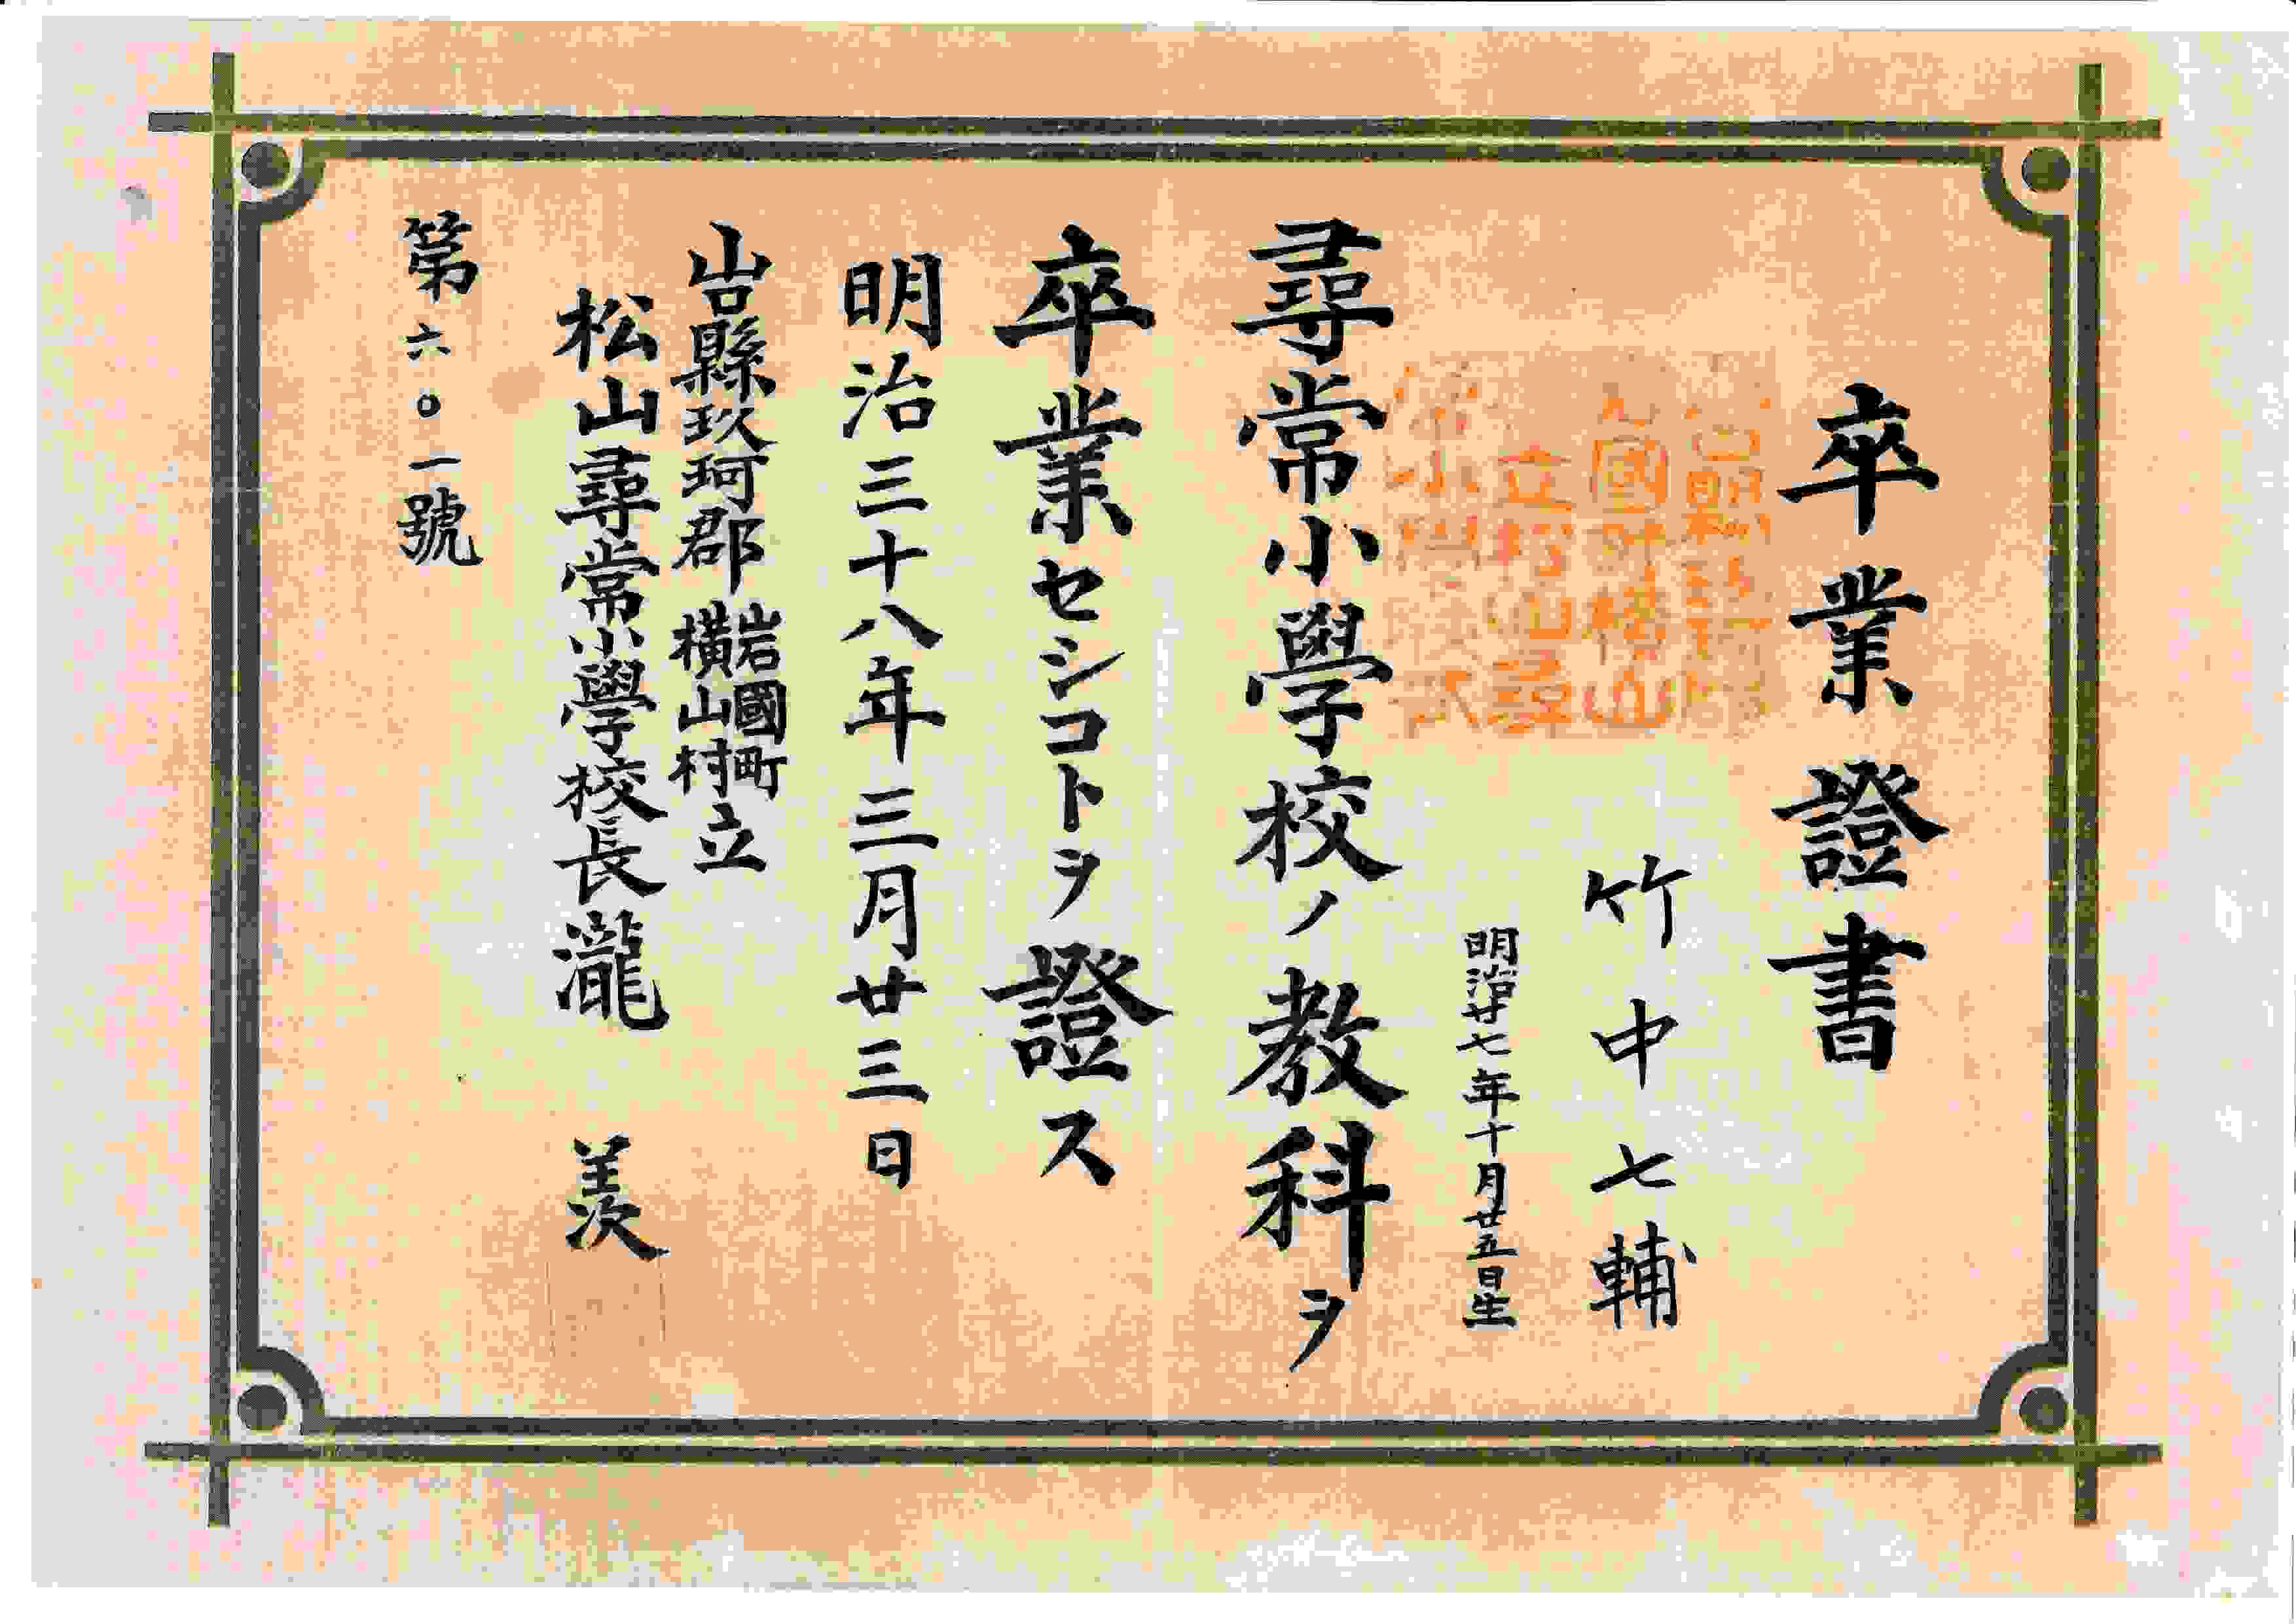 卒業證書
竹中七輔
明治廿七年十月廿五日生
尋常小學校ノ教科ヲ
卒業セシコトヲ證ス
明治三十八年三月廿三日
山口縣玖珂郡岩國町横山村立
松山尋常小學校長瀧 羨
第六〇一號